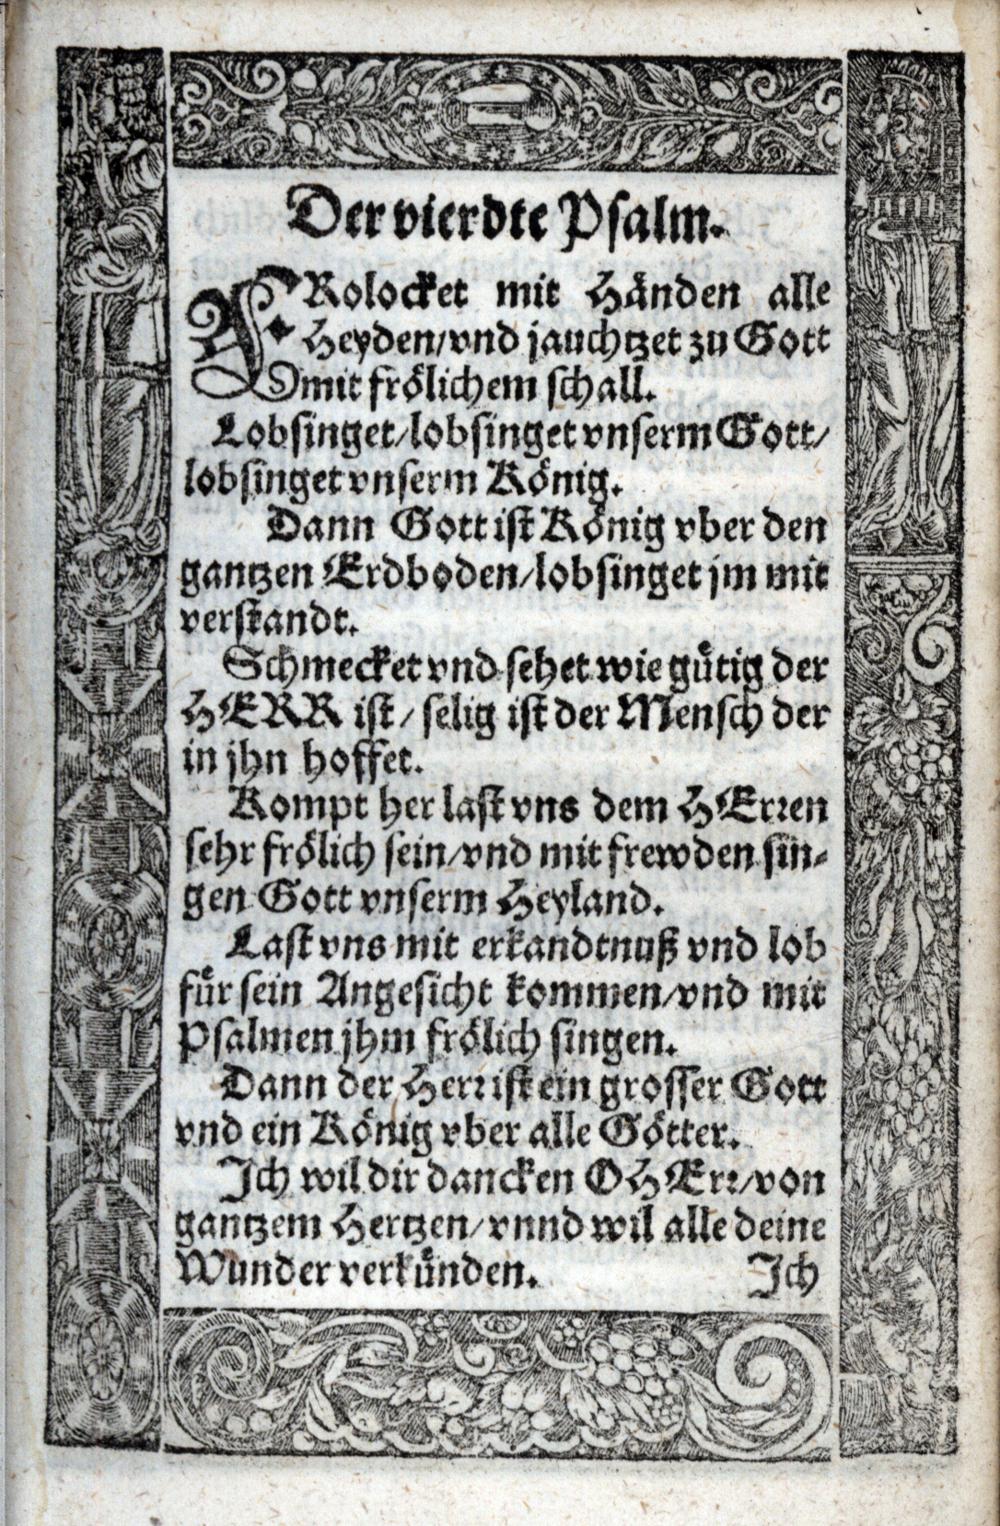 Der vierdte Psalm.
FRolocket mit Händen alle
Heyden/vnd jauchtzet zu Gott
mit frölichem schall.
Lobsinget/lobsinget vnserm Gott/
lobsinget vnserm König.
Dann Gott ist König vber den
gantzen Erdboden/lobsinget jm mit
verstandt.
Schmecket vnd sehet wie gütig der
HERR ist/ selig ist der Mensch der
in jhn hoffet.
Kompt her last vns dem HErren
sehr frölich sein/vnd mit frewden sin⸗
gen Gott vnserm Heyland.
Last vns mit erkandtnuß vnd lob
für sein Angesicht kommen/vnd mit
Psalmen jhm frölich singen.
Dann der Herr ist ein grosser Gott
vnd ein König vber alle Götter.
Ich wil dir dancken O HErr/von
gantzem Hertzen/vnnd wil alle deine
Wunder verkünden.
Ich